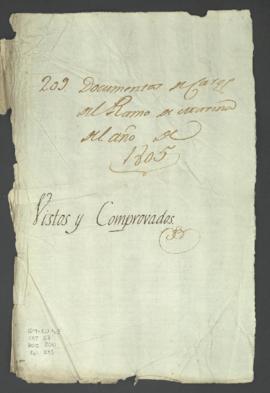 209. Documentos de Cargo
del Ramo de Marina
del año de
1805
Vistos y Comprovados.